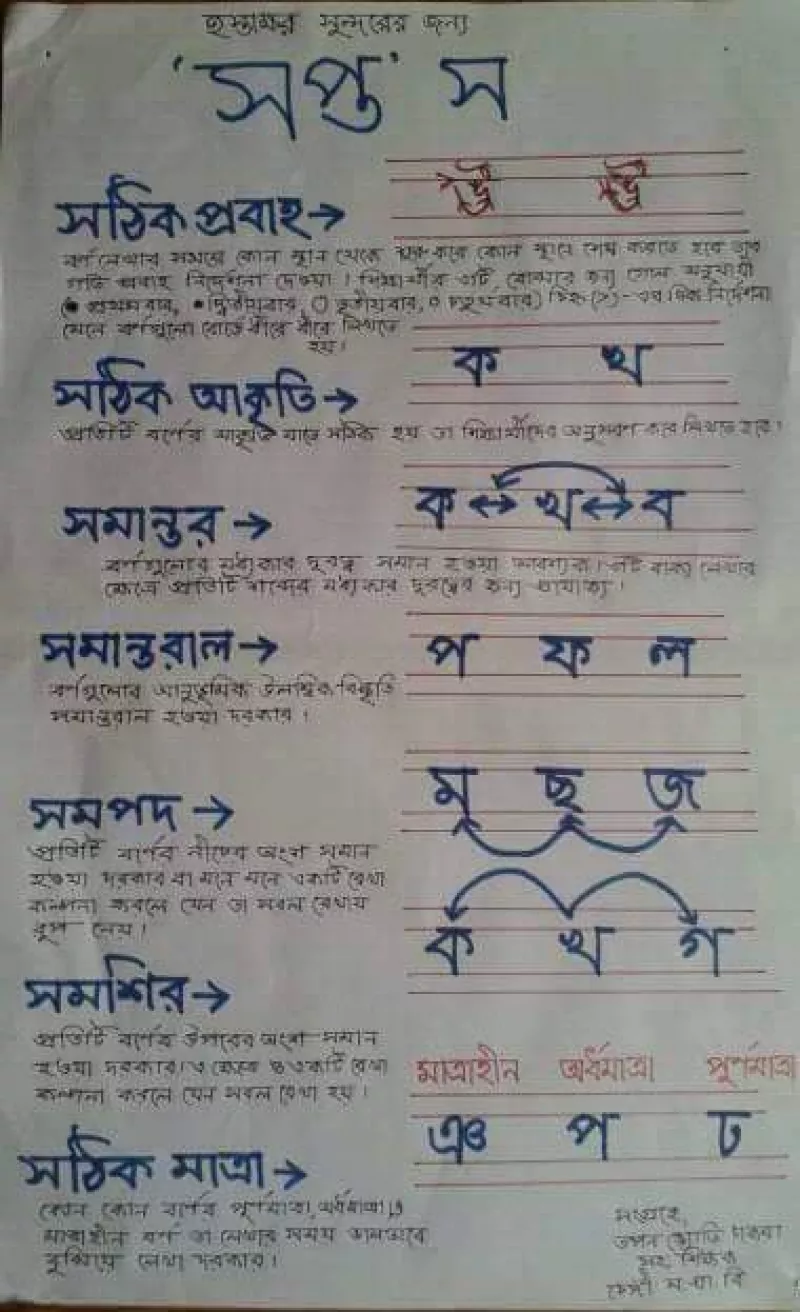 হস্তাক্ষর সুন্দরের জন্য
'সপ্ত' স
সঠিক প্রবাহ→
উ উ
বর্ণ লেখার সময়ে কোন স্থান থেকে শুরু করে কোন স্থানে শেষ করতে হবে তার
গতি প্রবাহ নির্দেশনা দেওয়া। শিক্ষার্থীর এটি বোঝাতে হবে গোল অনুযায়ী
(● প্রথমবার, ●দ্বিতীয়বার, ○ তৃতীয়বার, ০ চতুর্থবার) চিহ্ন (>)-এর দিক নির্দেশনা
মেনে বর্ণগুলো বোর্ডে ধীরে ধীরে লিখতে
হয়।
সঠিক আকৃতি→
ক খ
প্রতিটি বর্ণের আকৃতি যাতে সঠিক হয় তা শিক্ষার্থীদের অনুসরণ করে লিখতে হবে।
সমান্তর →
ক ↔ খ ↔ ব
বর্ণগুলোর মধ্যকার দূরত্ব সমান হওয়া আবশ্যক। এটি বাক্য লেখার
ক্ষেত্রে প্রতিটি শব্দের মধ্যকার দূরত্বের জন্য প্রযোজ্য।
সমান্তরাল→
প ফ ল
বর্ণগুলোর আনুভূমিক উলম্বিক বিস্তৃতি
সমান্তরাল হওয়া দরকার।
সমপদ →
মূ ছূ জূ
প্রতিটি বর্ণের নীচের অংশ সমান
হওয়া দরকার বা মনে মনে একটি রেখা
কল্পনা করলে যেন তা সরল রেখায়
রূপ নেয়।
সমশির→
ক খ গ
প্রতিটি বর্ণের উপরের অংশ সমান
হওয়া দরকার। এ ক্ষেত্রেও একটি রেখা
কল্পনা করলে যেন সরল রেখা হয়।
মাত্রাহীন অর্ধমাত্রা পূর্ণমাত্রা
ঞ প ঢ
সঠিক মাত্রা→
কোন কোন বর্ণের পূর্ণমাত্রা, অর্ধমাত্রা ও
মাত্রাহীন বর্ণ তা লেখার সময় ভালভাবে
বুঝিয়ে লেখা দরকার।
সংগ্রহে,
তপন জ্যোতি চাকমা
সহ শিক্ষক
স. প্রা. বি